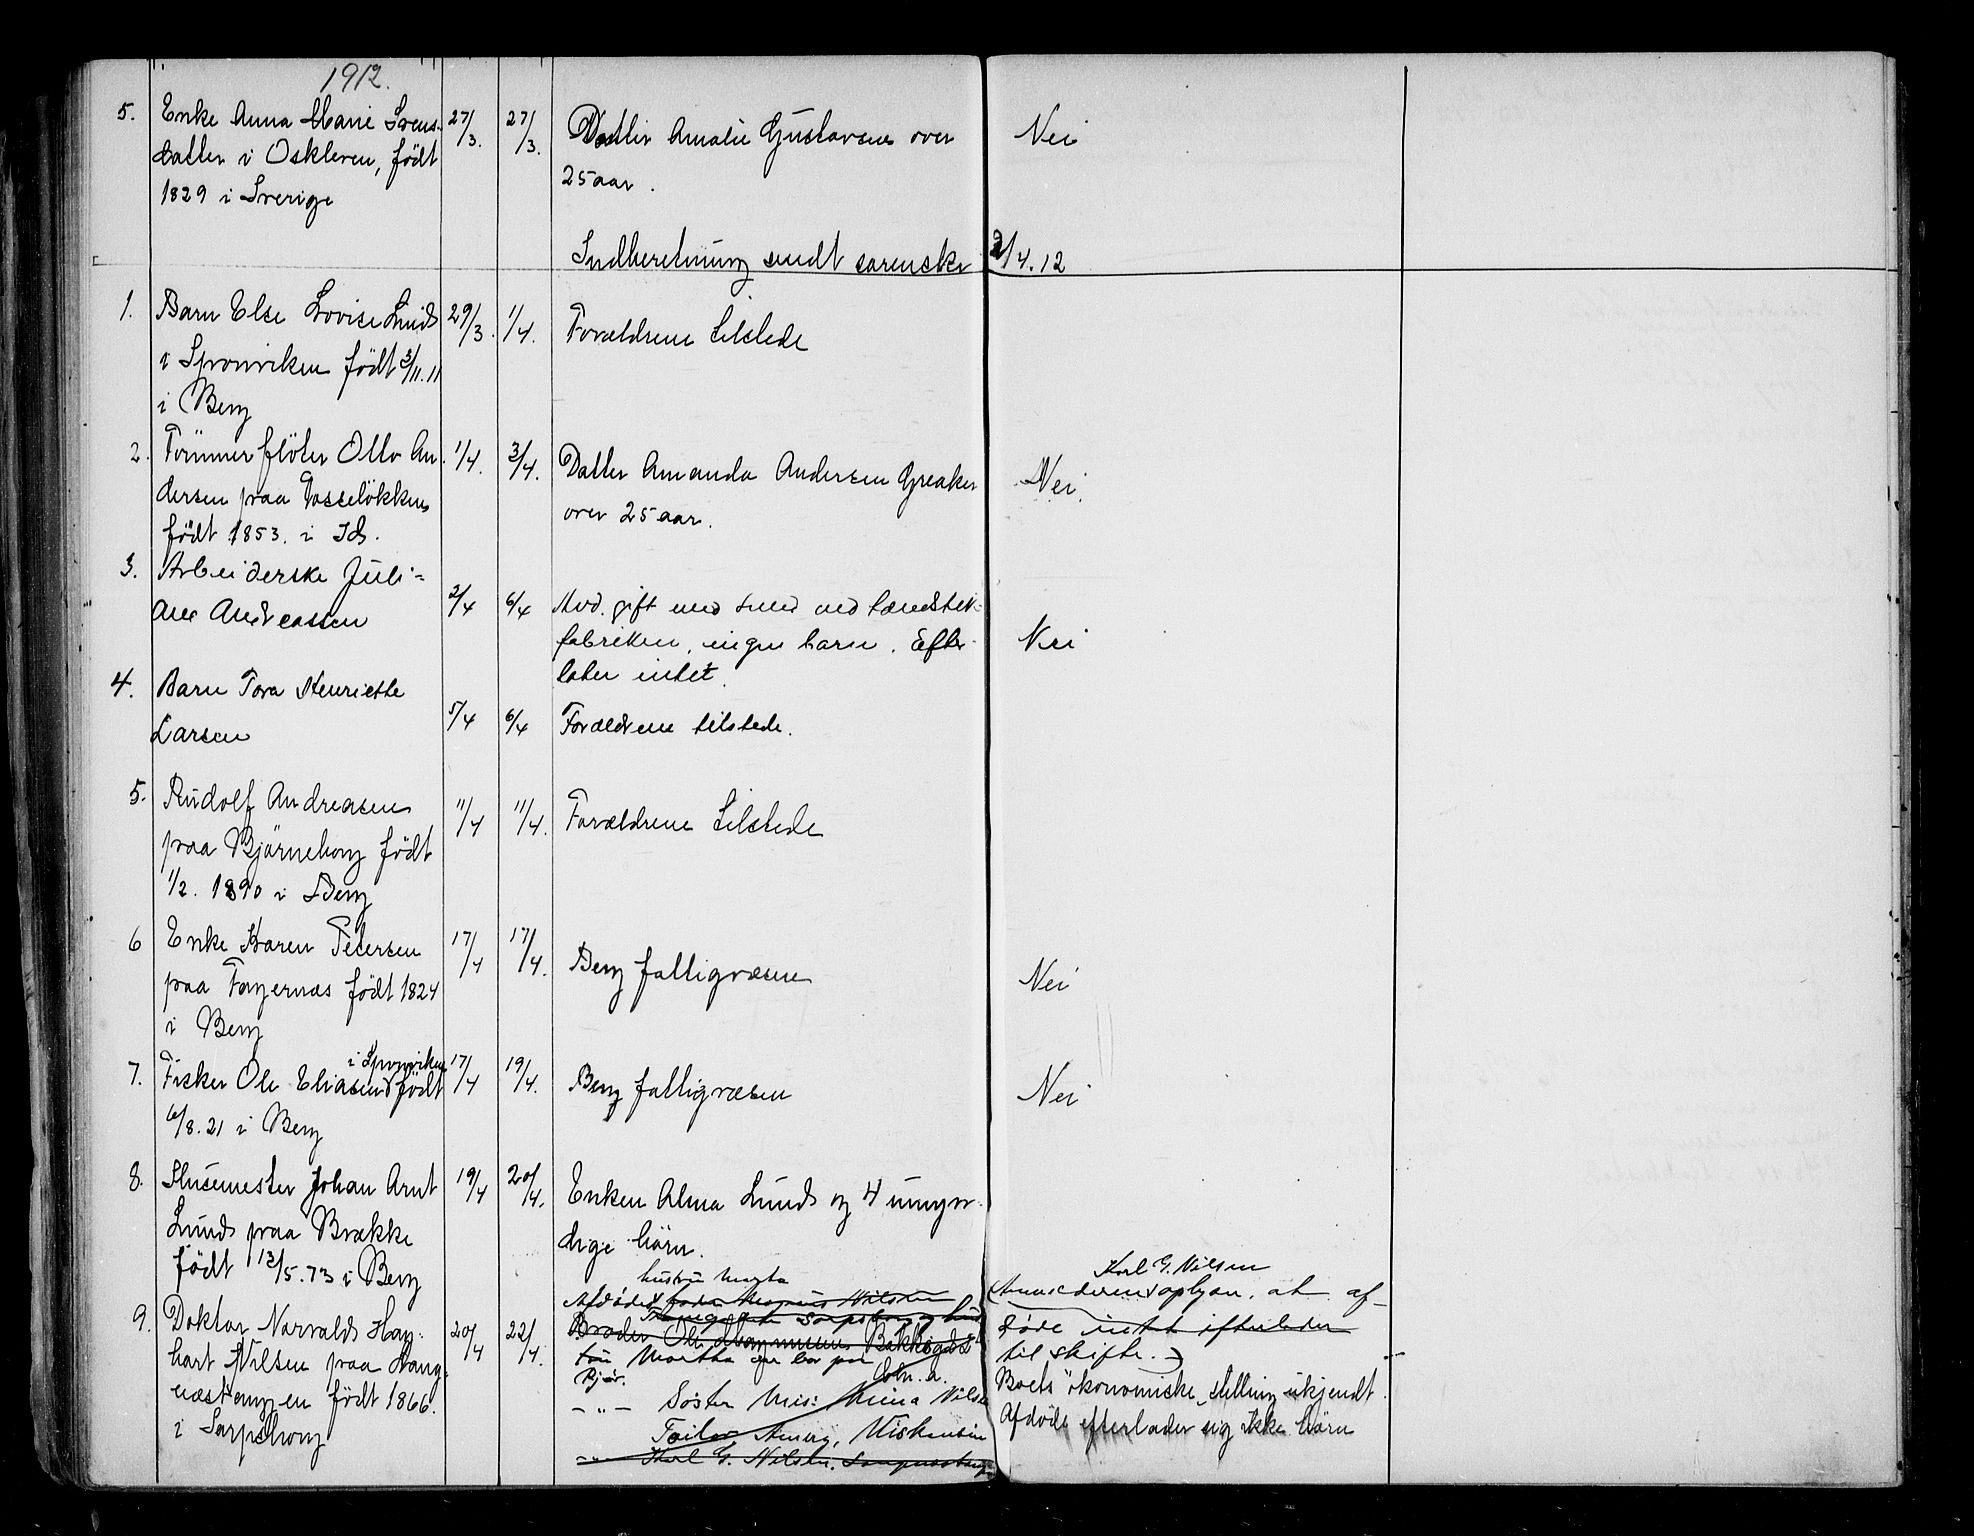 1912.
5. Enke Anna Marie Svens- 27/3. 27/3. Datter Amalie Gustavsen over Nei
datter i Oskleven, født 25 aar.
1829 i Sverige
Indberetning sendt sorenskr 2/4.12
1. Barn Else Lovise Lund 29/3. 1/4. Forældrene tilstede
i Sponviken født 3/11.11
i Berg
2. Tømmerfløter Otto An- 1/4. 3/4. Datter Amanda Andersen Greaker Nei.
dersen paa Tosseløkken over 25 aar.
født 1853. i Id.
3. Arbeiderske Juli-
ane Andreassen 2/4 6/4 Avd. gift med smed ved tændstik-
fabriken, ingen barn. Efter- Nei
later intet.
4. Barn Tora Henriette
Larsen 5/4 6/4 Forældrene tilstede.
5. Rudolf Andreasen 11/4 11/4. Forældrene tilstede
paa Bjørnehong født
1/2. 1890 i Berg
6 Enke Karen Petersen 17/4 17/4. Berg fattigvæsen Nei
paa Fagernæs født 1824
i Berg
i Sponviken
7. Fisker Ole Eliasen født 17/4 19/4. Berg fattigvæsen Nei
6/8.21 i Berg
8. Slusemester Johan Arnt 19/4 20/4. Enken Alma Lund og 4 umyn-
Lund paa Brække dige børn.
født 13/5.73 i Berg
hustru Marta Karl G. Nilsen
Afdødes fader Magnus Nilsen Anmelderen oplyser, at af-
9. Doktor Narvald Hag- 20/4 22/4. Broder Ole Bakkegd. døde intet efterlader
bart Nilsen paa Martha til skifte.
født 1866. Søster Mrs: Mina Nilsen Boets økonomiske stilling ukjendt.
i Sarpsborg Amerig, Afdøde efterlader sig ikke børn
Karl G. Nilsen.